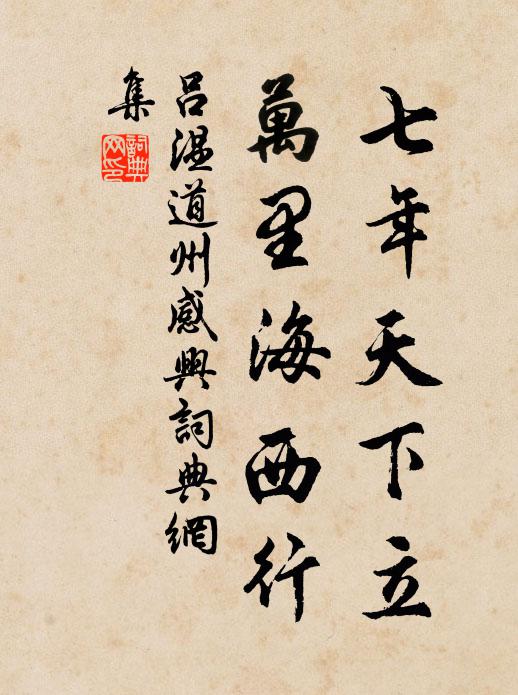 七年天下立
萬里海西行
呂温道州感興詞典網
集
詞典
网印